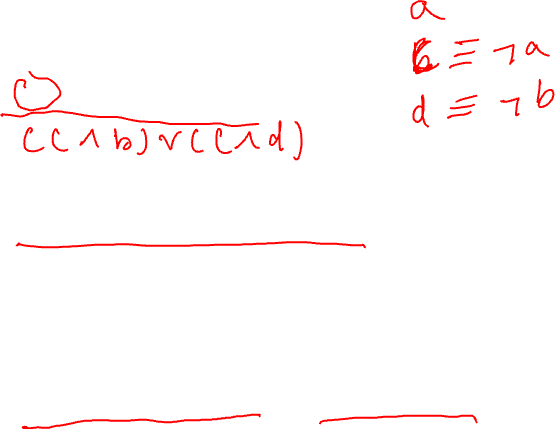 a
c ≡ ¬a
d ≡ ¬b
c
(c ∧ b) ∨ (c ∧ d)